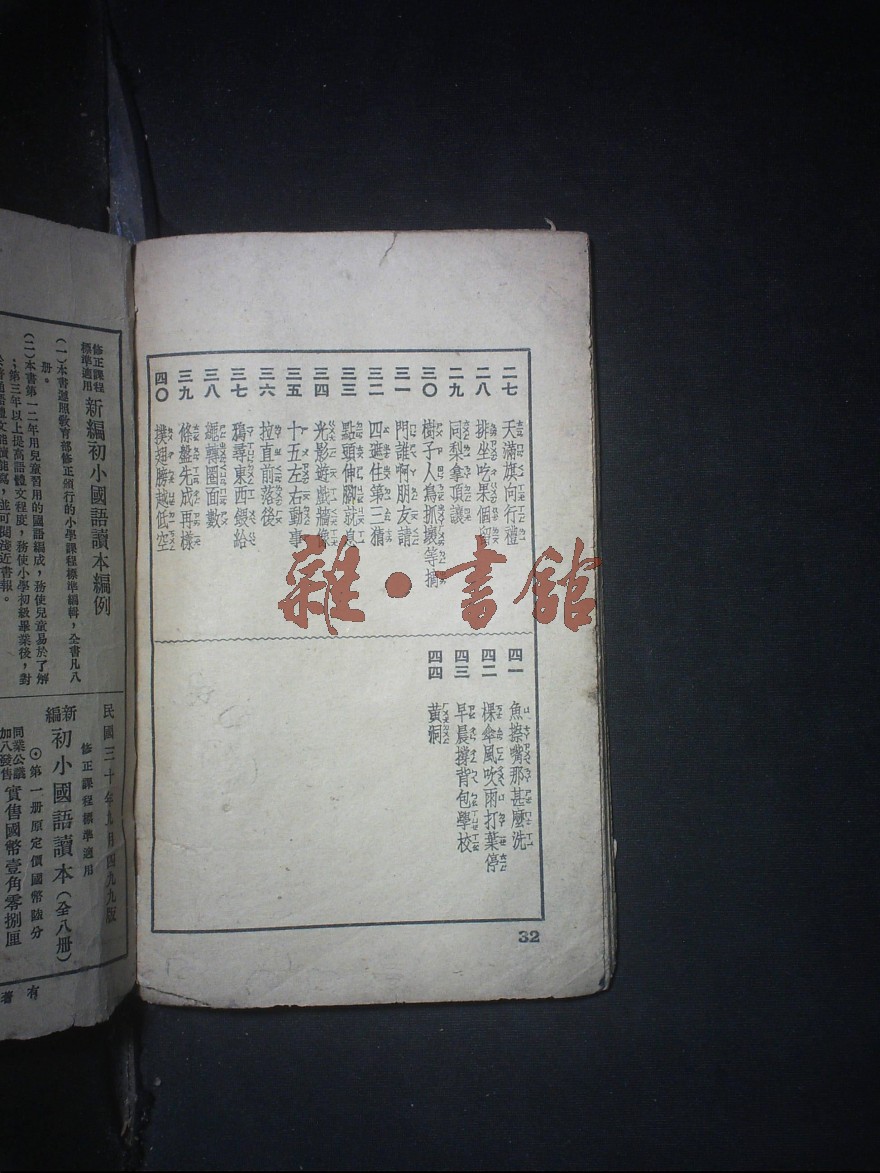 二七 天滿旗向行禮
二八 排坐吃果個留
二九 同梨拿頂讓
三〇 樹子人鳥抓壞等摘
三一 門誰啊朋友請
三二 四遮住第三猜
三三 點頭伸腳就息
三四 光影遊戲牆像
三五 十五左右動事
三六 拉直前落後
三七 鴉尋東西餵給
三八 繩轉圈面數
三九 條盤先成再樣
四〇 撲翅勝越低空
四一 魚擦嘴那甚麼洗
四二 棵傘風吹雨打葉停
四三 早晨撐背包學校
四四 黃洞
32
雜·書館
修正課程標準適用
新編初小國語讀本編例
(一)本書遵照敎育部修正頒行的小學課程標準編輯,全書凡八
冊。
(二)本書第一二年用兒童習用的國語編成,務使兒童易於了解
;第三年以上提高語體文程度,務使小學初級畢業後,對
於普通語體文能讀能寫,並可閱淺近書報。
民國三十年九月四九九版
修正課程標準適用
新編初小國語讀本(全八冊)
⊙第一册原定價國幣陸分
同業公議加八發售
實售國幣壹角零捌厘
有
著